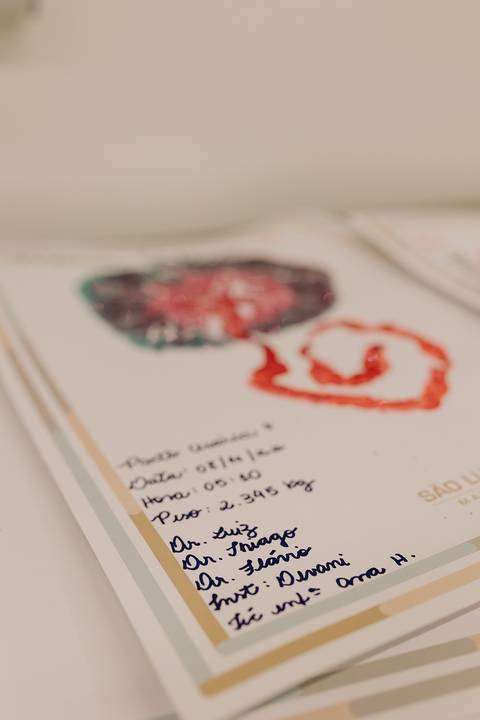 Data: 08/11/22
Hora: 05:30
Peso: 2.345 kg
Dr. Luiz
Dr. Thiago
Dr. Flávio
Inst: Devani
Téc enfª Ana H.
SÃO LU
MA